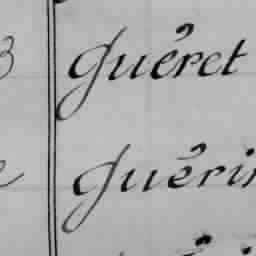 Guéret
Guérin